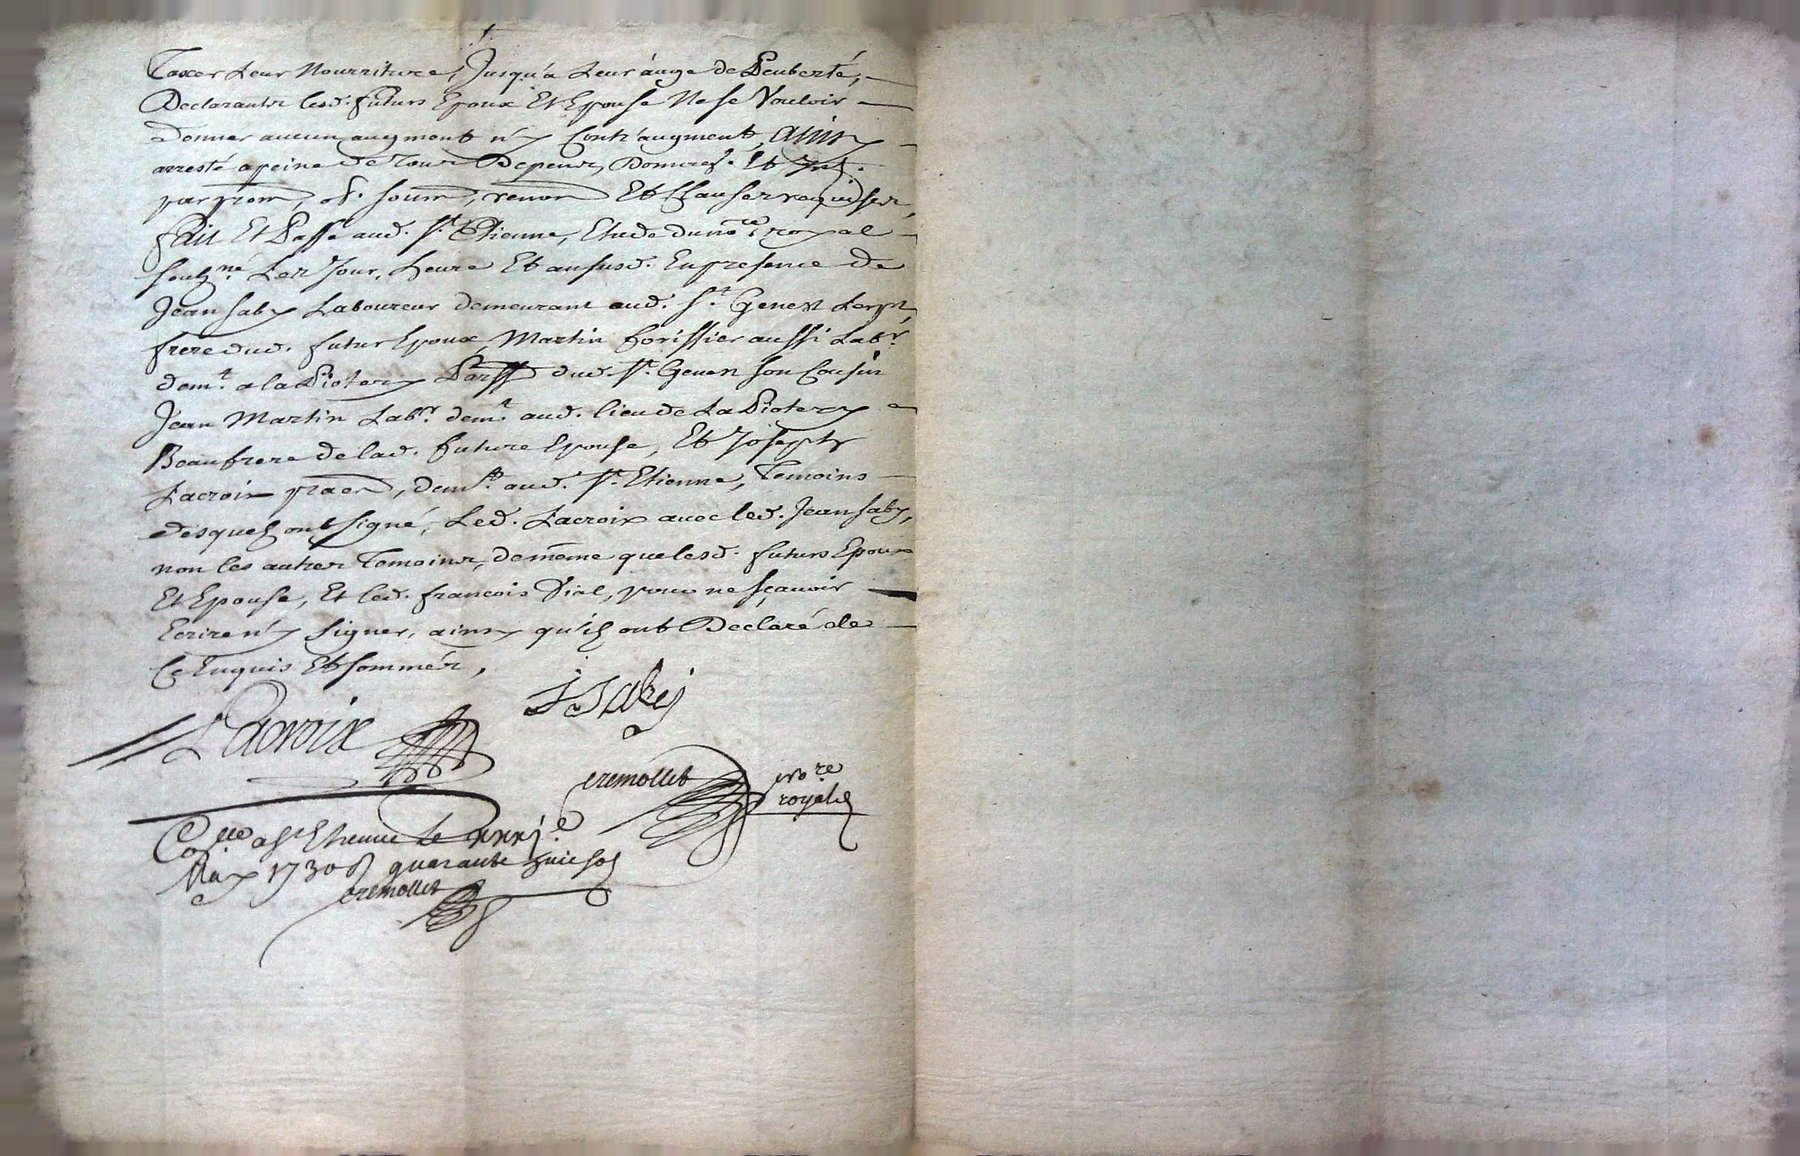 Taxer Leur Nourriture, Jusqu'a Leur áage de Peuberté,
Declarants lesd. futurs Epoux Et Epouse Ne se Vouloir
Donner aucun augment n'y Contr'augment, ainsy
arresté a peine de tous Depens, Domres. Et Int.
par prom, ob. soum, renon Et Clauses requises,
fait Et Passé aud. St. Etienne, Etude du nore royal
soubz.né Les Jour, heure Et an susd. En presence de
Jean Saby Laboureur demeurant aud. St Genest Lerpt,
frere dud. futur Epoux, Martin forissier aussi Labr.
demt. a la Pioterÿ Parsse dud. St. Genest son Cousin
Jean Martin Labr. demt. aud. lieu de La Pioterÿ
Beaufrere de lad. future Epouse, Et Joseph
Lacroix praen, demt. aud. St. Etienne, Temoins
desquels ont signé, Led. Lacroix avec led. Jean Saby,
non les autres Temoins, de même que lesd. futurs Epoux
Et Epouse, Et led. francois Vial, pour ne sçavoir
Ecrire n'y signer, ainsy qu'ils ont Declaré de
Ce Enquis Et sommés,
Lacroix
J Sabij
cremollet nore
royal
Colle a St Etienne le xxxj.e
May 1730 quarante huit sols
cremollet